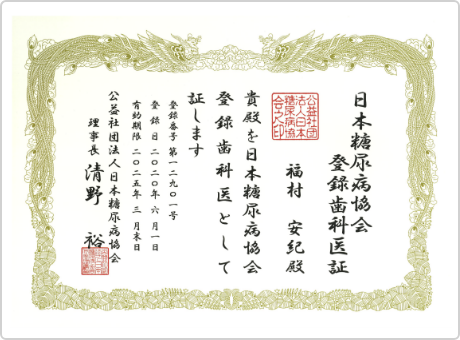 日本糖尿病協会
登録歯科医証
公益社団
法人日本
糖尿病協
会之印
福村 安紀殿
貴殿を日本糖尿病協会
登録歯科医として
証します
登録番号 第一二九〇一号
登録日 二〇二〇年 六月一日
有効期限 二〇二五年 三月末日
公益社団法人日本糖尿病協会
理事長 清野 裕